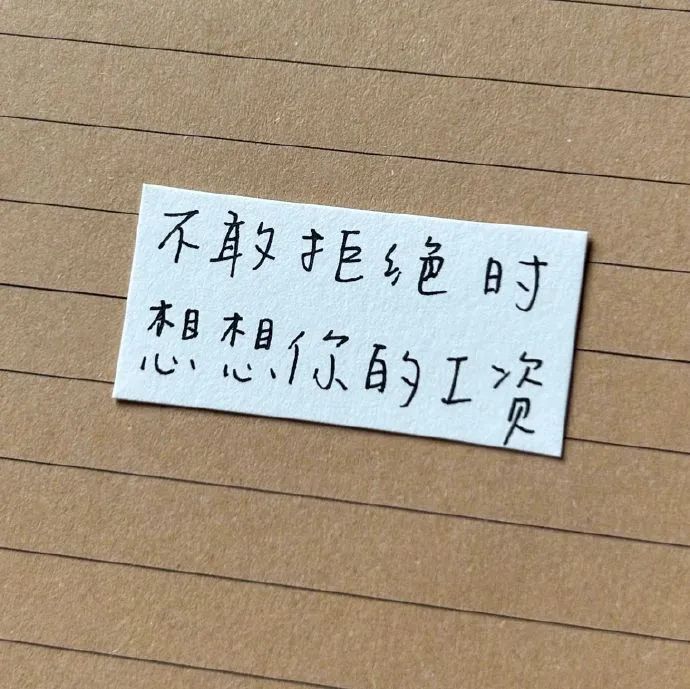 不敢拒绝时
想想你的工资